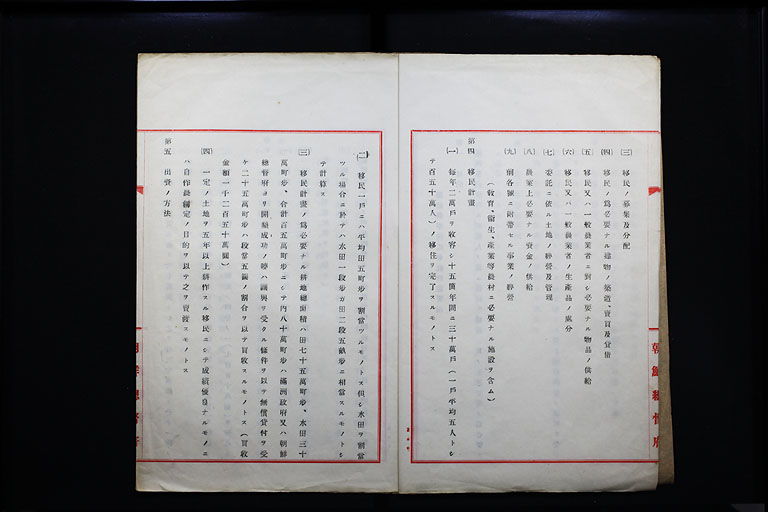 (三) 移民ノ募集及分配
(四) 移民ノ爲必要ナル建物ノ築造、賣買及貸借
(五) 移民又ハ一般農業者ニ對シ必要ナル物品ノ供給
(六) 移民又ハ一般農業者ノ生產品ノ處分
(七) 委託ニ依ル土地ノ經營及管理
(八) 農業上必要ナル資金ノ供給
(九) 前各號ニ附帶セル事業ノ經營
(敎育、衞生、產業等農村ニ必要ナル施設ヲ含ム)
第四 移民計畫
(一) 每年二萬戶ヲ收容シ十五箇年間ニ三十萬戶(一戶平均五人トシ
テ百五十萬人)ノ移住ヲ完了スルモノトス
朝鮮總督府
(二) 移民一戶ニハ平均田五町步ヲ割當ツルモノトス但シ水田ヲ割當
ツル場合ニ於テハ水田一段步ガ田二段五畝步ニ相當スルモノトシ
テ計算ス
(三) 移民計畫ノ爲必要ナル耕地總面積ハ田七十五萬町步、水田三十
萬町步、合計百五萬町步ニシテ內八十萬町步ハ滿洲政府又ハ朝鮮
總督府ヨリ開墾成功ノ時ハ讓與ヲ受クル條件ヲ以テ無償貸付ヲ受
ケ二十五萬町步ハ段當五圓ノ割合ヲ以テ買收スルモノトス(買收
金額一千二百五十萬圓)
(四) 一定ノ土地ヲ五年以上耕作スル移民ニシテ成績優良ナルモノニ
ハ自作農創定ノ目的ヲ以テ之ヲ賣渡スモノトス
第五 出資ノ方法
朝鮮總督府